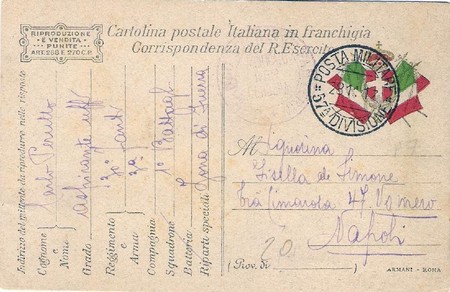 RIPRODUZIONE
E VENDITA
PUNITE
ART. 293 E 297 C.P.
Cartolina postale Italiana in franchigia
Corrispondenza del R. Esercito
POSTA MILITARE
57ª DIVISIONE
Indirizzo del mittente da riprodurre nelle risposte
Cognome e Nome
Carlo Perillo
Grado
aspirante uff
Reggimento e Arma
30° fant
Compagnia
3ª
Squadrone
1° Battagl
Batteria
Riparti speciali
Zona di Guerra
Al Signorina
Gisella di Simone
Via Cimarosa 47 Vomero
Napoli
(Prov. di
)
ARMANI - ROMA